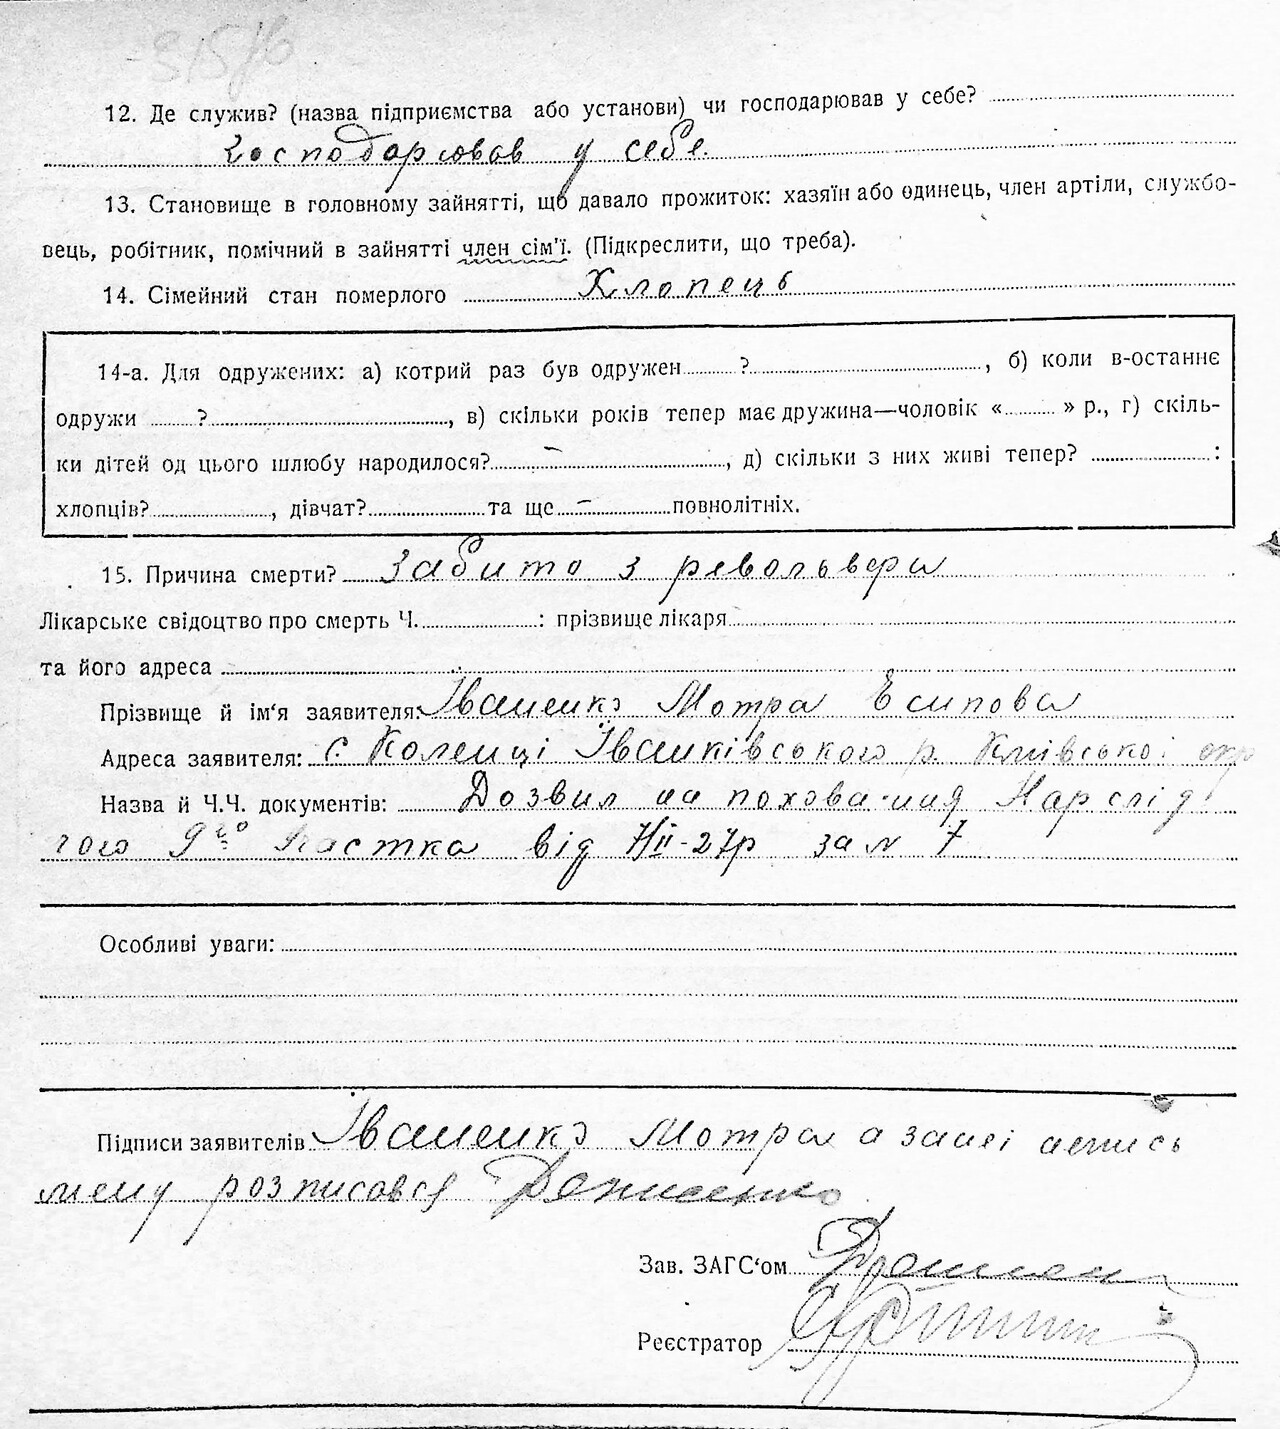 12. Де служив? (назва підприємства або установи) чи господарював у себе?
Господарював у себе.
13. Становище в головному зайнятті, що давало прожиток: хазяїн або одинець, член артіли, службо-
вець, робітник, помічний в зайнятті член сім'ї. (Підкреслити, що треба).
14. Сімейний стан померлого Хлопець
14-а. Для одружених: а) котрий раз був одружен ? , б) коли в-останнє
одружи ? , в) скільки років тепер має дружина—чоловік « » р., г) скіль-
ки дітей од цього шлюбу народилося? – , д) скільки з них живі тепер? :
хлопців? , дівчат? та ще – повнолітніх.
15. Причина смерти? Забито з револьвера
Лікарське свідоцтво про смерть Ч. : прізвище лікаря
та його адреса
Прізвище й ім'я заявителя: Іваненко Мотра Есипова
Адреса заявителя: с Коленці Іванківського р. Київської окр
Назва й Ч.Ч. документів: Дозвил на поховання Нарслід
чого 9го Участка від 7/II-27р за № 7
Особливі уваги:
Підписи заявителів Іваненко Мотра а за неі непись
мену розписався Денисенко
Зав. ЗАГС'ом
Реєстратор